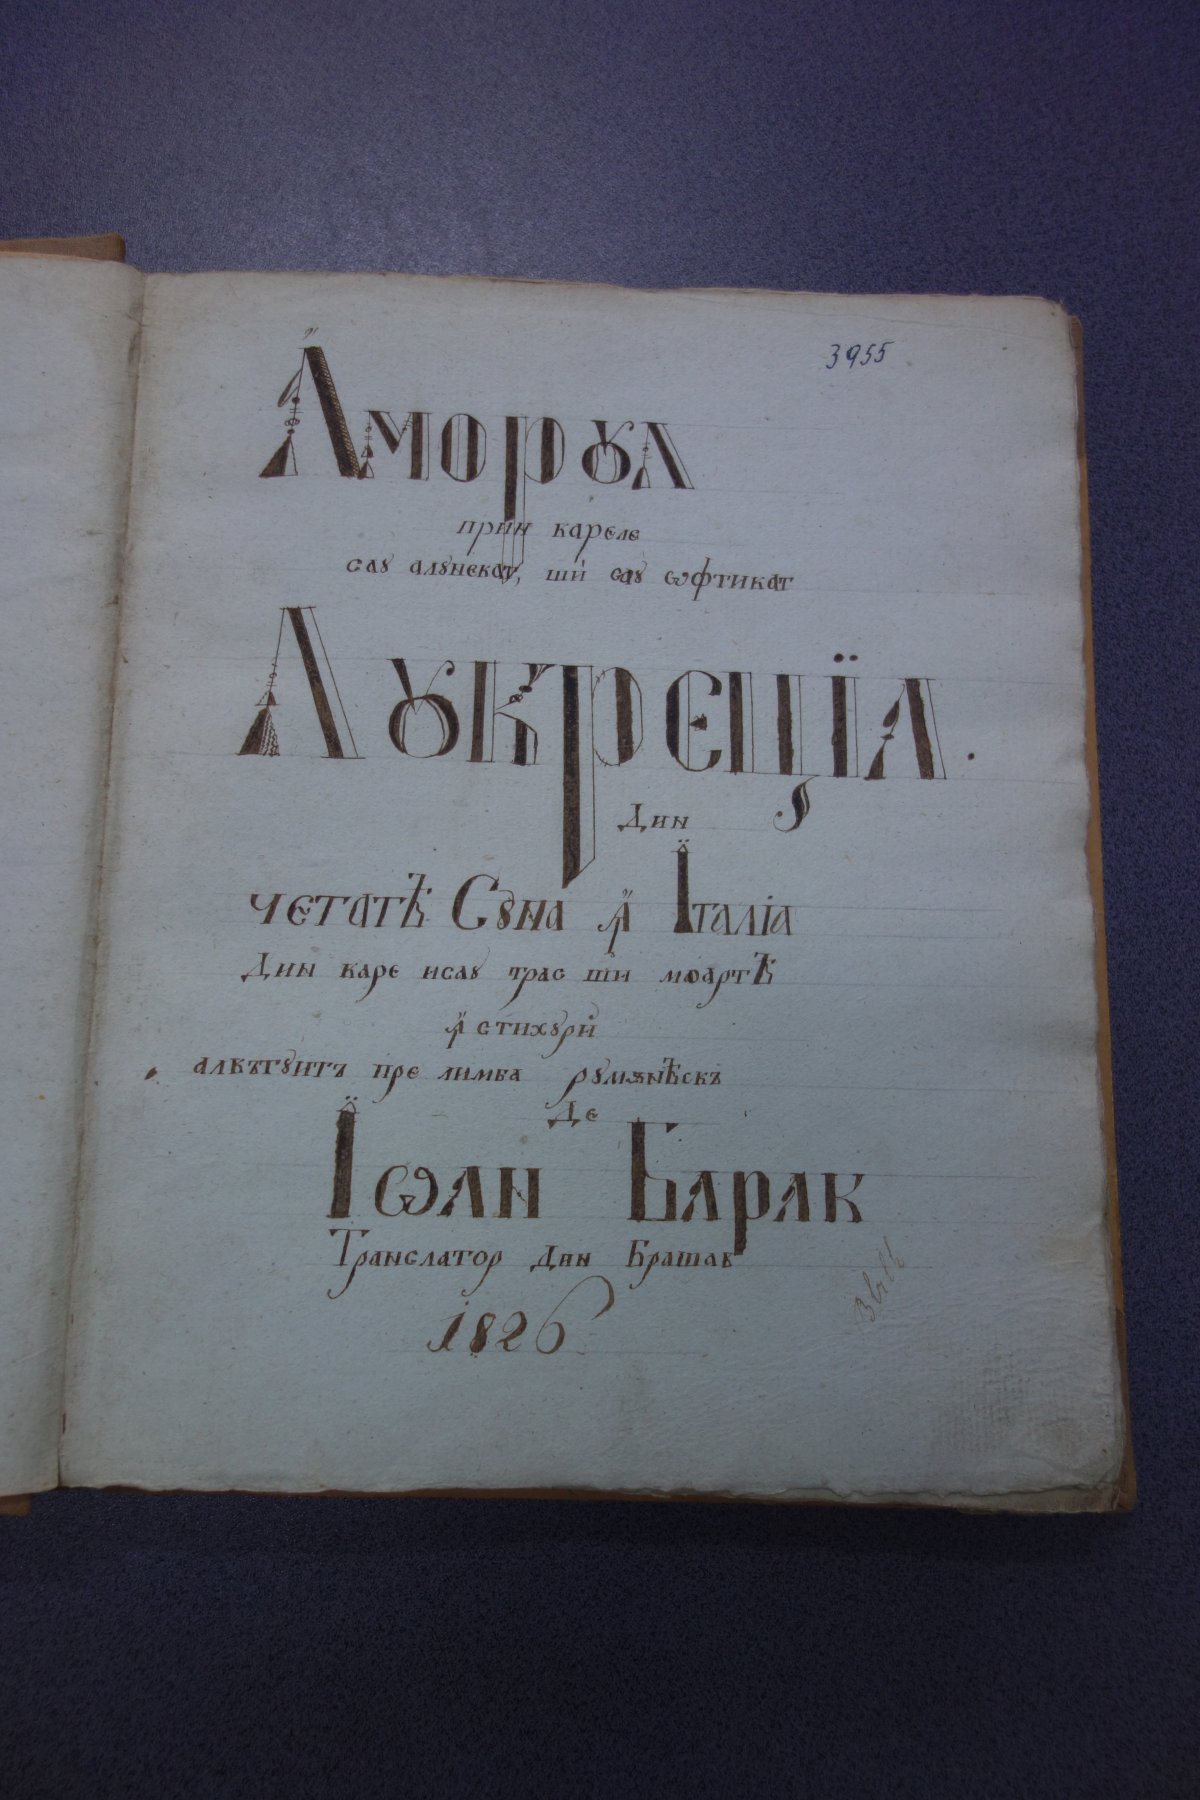 3955
Аморꙋл
прин кареле
саꙋ алꙋнекат, ши саꙋ ѡфтикат
Лꙋкреція.
Дин
четатѣ Сꙋна ꙟ Італіа
Дин каре исаꙋ трас ши моартѣ
ꙟ стихꙋри
алкътꙋитъ пре лимба рꙋмѫнѣскъ
Де
Іѡан Барак
Транслатор дин Брашав
1826